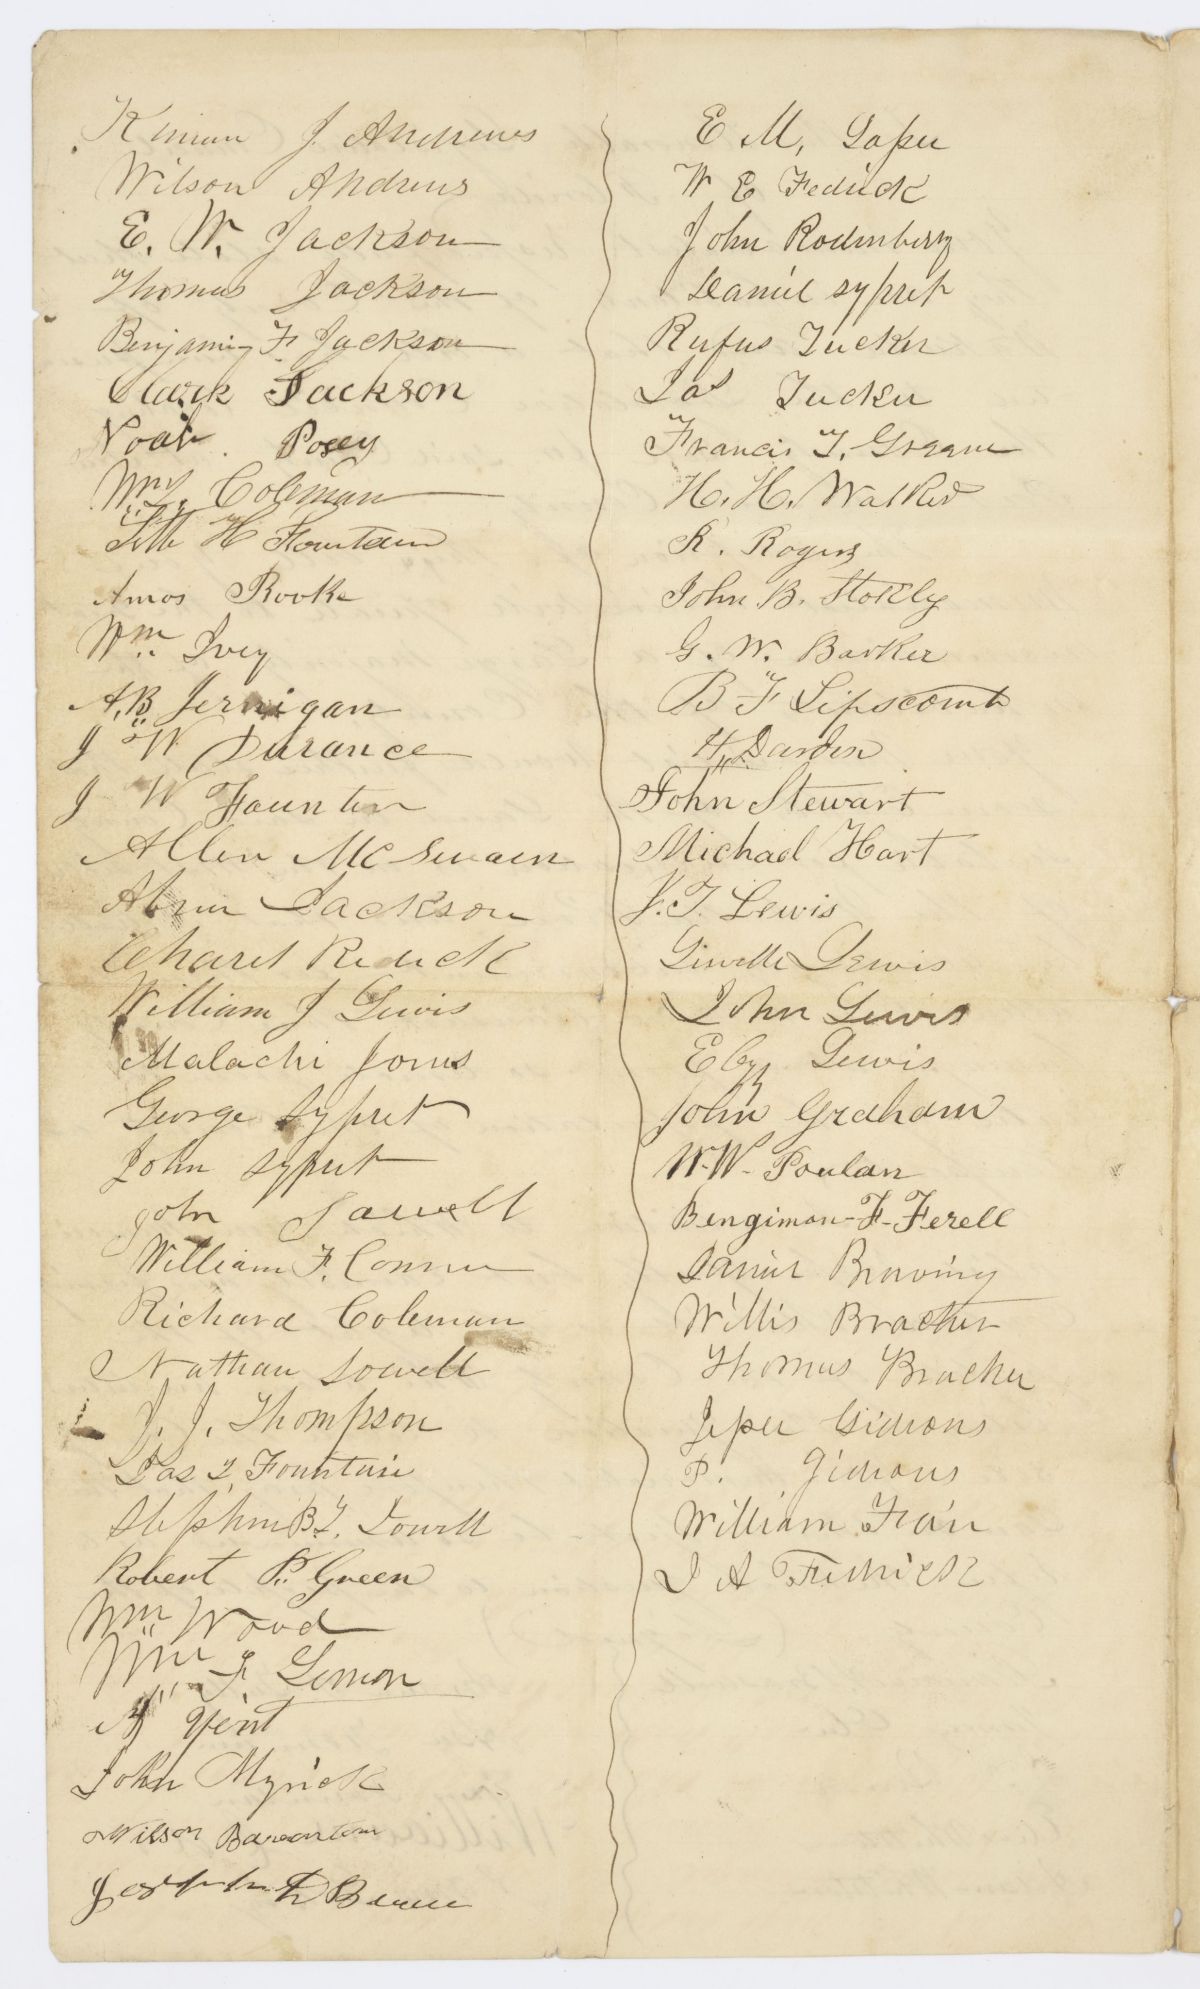 J. Andrews
Wilson Andrews
E. W. Jackson
Thomas Jackson
Benjamin F. Jackson
Clark Jackson
Noah Posey
Wm Coleman
H Fountain
Amos Rooke
Wm Ivey
A. B Jernigan
J W Durance
J W Faunten
Allen McSwaen
Jackson
Redick
William J Lewis
Malachi Jones
George Sypret
John Sypret
John Sawell
William F. Conner
Richard Coleman
Nathan Sowell
J. J. Thompson
Jas T. Fountain
Stephen B. T. Sowell
Robert P. Green
Wm Wood
Wm J Lemon
Yent
John Myrick
Wilson
Joseph
E M, Soper
W E Fedrick
John Rodenberg
Daniel Sypret
Rufus Tucker
Jas Tucker
Francis T. Greane
H. H. Walker
R. Rogers
John B. Stokly
G. W. Barker
B F Lipscomb
H. Darden
John Stewart
Michael Hart
J. T. Lewis
Lewis
John Lewis
Eby Lewis
John Graham
W. W. Poulan
Bengiman F. Ferell
Daniel
Willis Bracher
Thomas Bracher
Jesper Gideons
P. Gideons
William
J A